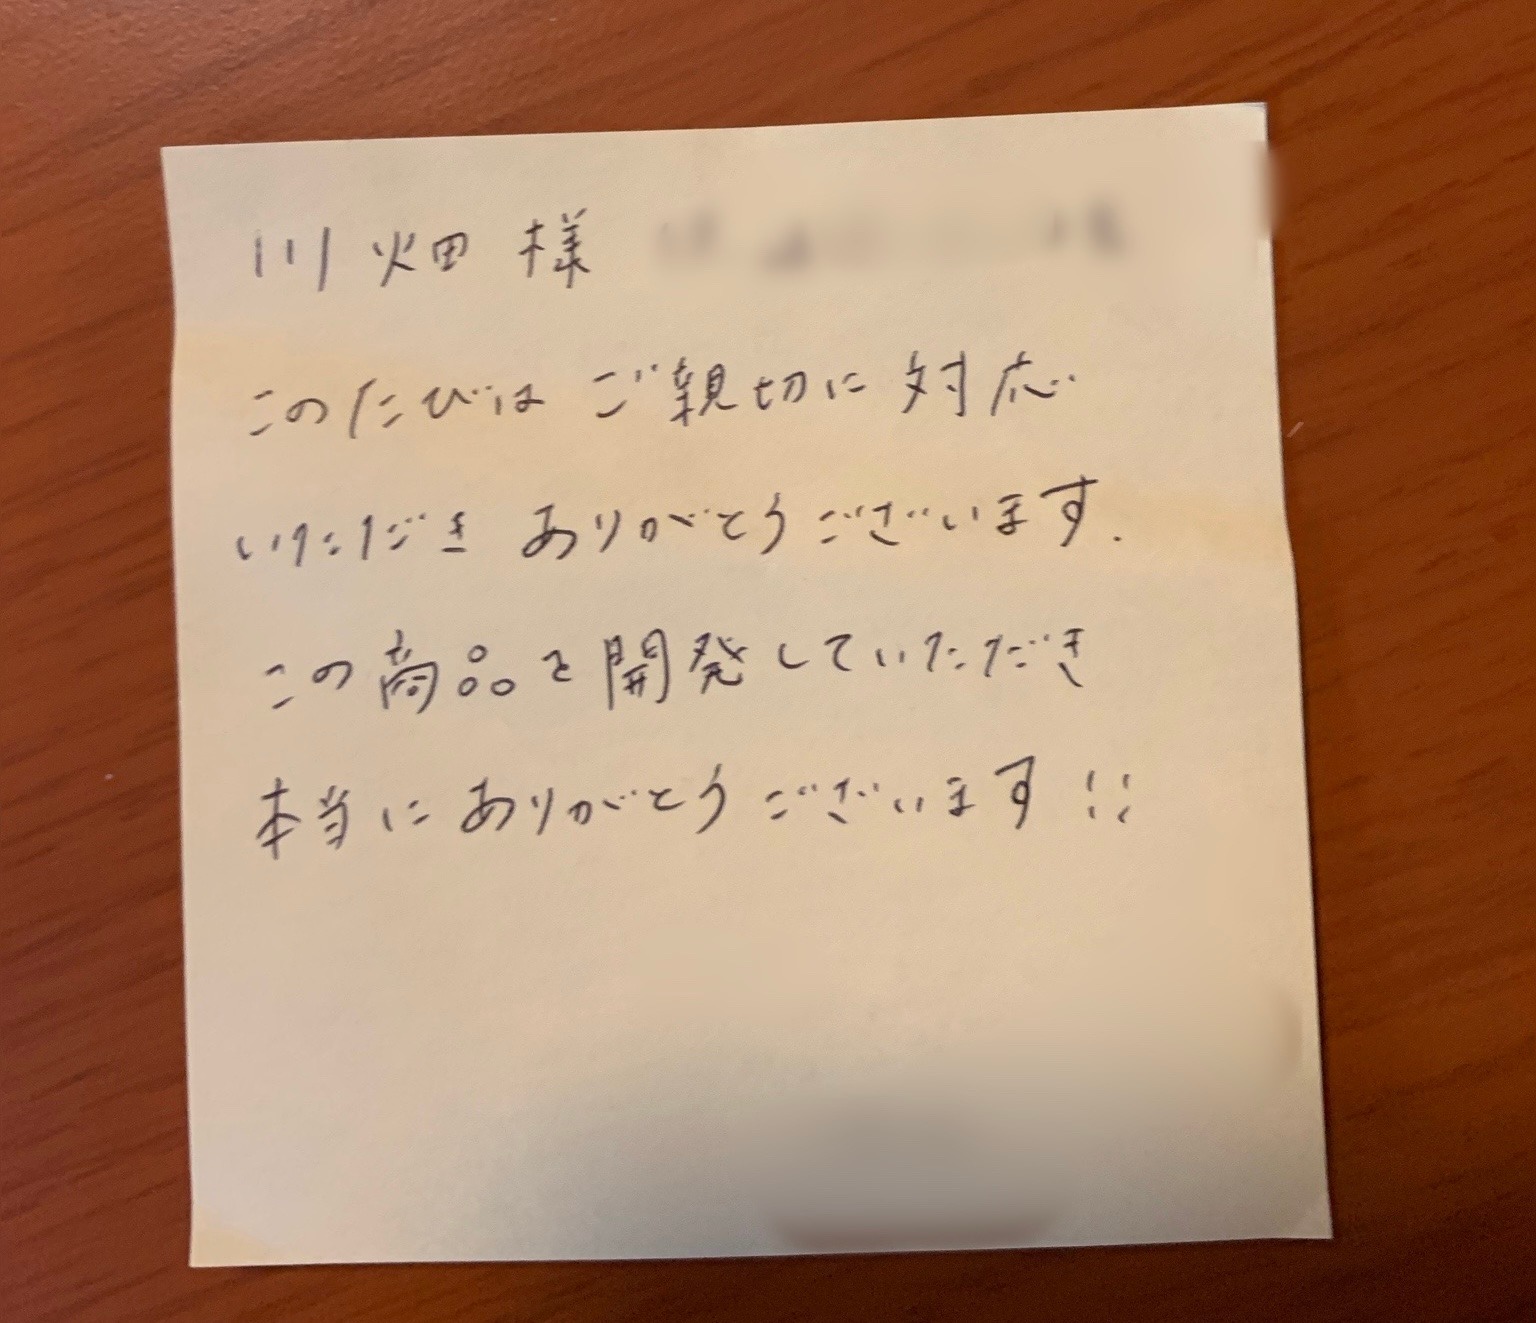 川畑 様
このたびは ご親切に 対応
いただき ありがとうございます.
この商品を開発していただき
本当に ありがとう ございます!!